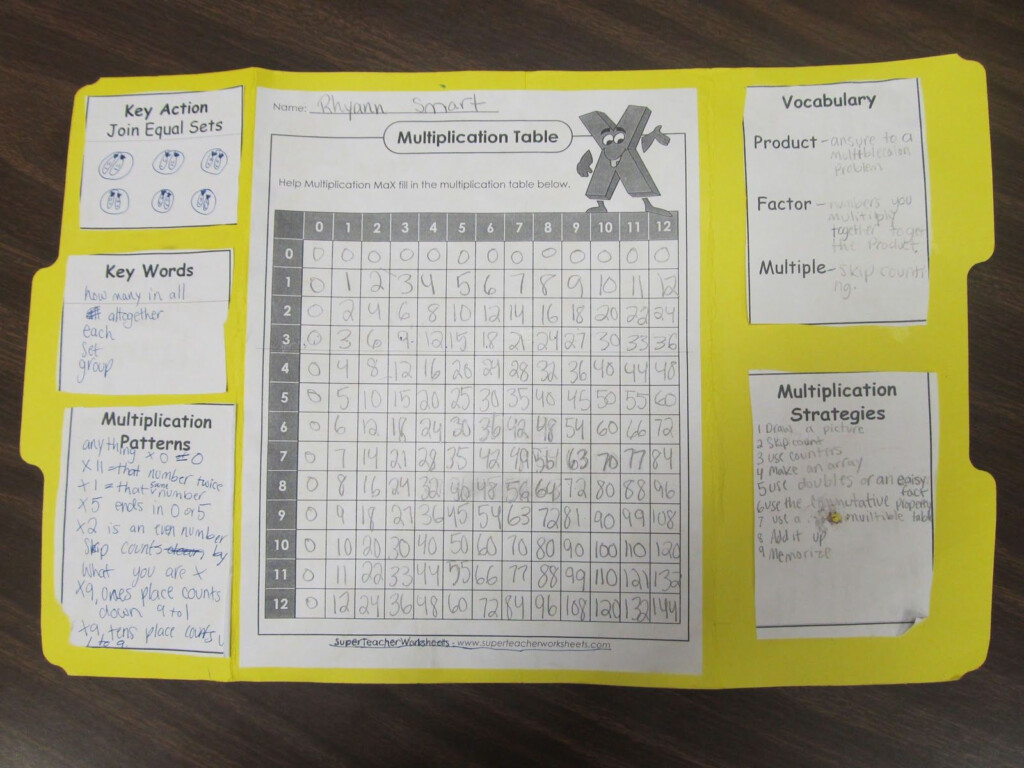 Key Action
Join Equal Sets
Key Words
how many in all
altogether
each
set
group
Multiplication
Patterns
anything x 0 = 0
X 11 = that number twice
X 1 = that same number
X 5 ends in 0 or 5
X 2 is an even number
Skip counts by
What you are X
X9, ones place counts
down 9 to 1
X9, tens place counts
1 to 9.
Name: Rhyann Smart
Multiplication Table
Help Multiplication MaX fill in the multiplication table below.
0 1 2 3 4 5 6 7 8 9 10 11 12
0 0 0 0 0 0 0 0 0 0 0 0 0 0
1 0 1 2 3 4 5 6 7 8 9 10 11 12
2 0 2 4 6 8 10 12 14 16 18 20 22 24
3 0 3 6 9 12 15 18 21 24 27 30 33 36
4 0 4 8 12 16 20 24 28 32 36 40 44 48
5 0 5 10 15 20 25 30 35 40 45 50 55 60
6 0 6 12 18 24 30 36 42 48 54 60 66 72
7 0 7 14 21 28 35 42 49 56 63 70 77 84
8 0 8 16 24 32 48 56 64 72 80 88 96
9 0 9 18 27 36 45 54 63 72 81 90 99 108
10 0 10 20 30 40 50 60 70 80 90 100 110 120
11 0 11 22 33 44 55 66 77 88 99 110 121 132
12 0 12 24 36 48 60 72 84 96 108 120 132 144
SuperTeacherWorksheets - www.superteacherworksheets.com
Vocabulary
Product - ansure to a
problem
Factor - numbers you
multiply
together to get
the Product
Multiple - Skip counti
ng.
Multiplication
Strategies
1 Draw a picture
2 Skip count
3 use counters
4 Make an array
5 use doubles or an easy
fact
6 use the commutative property
7 use a multible table
8 Add it up
9 Memorize